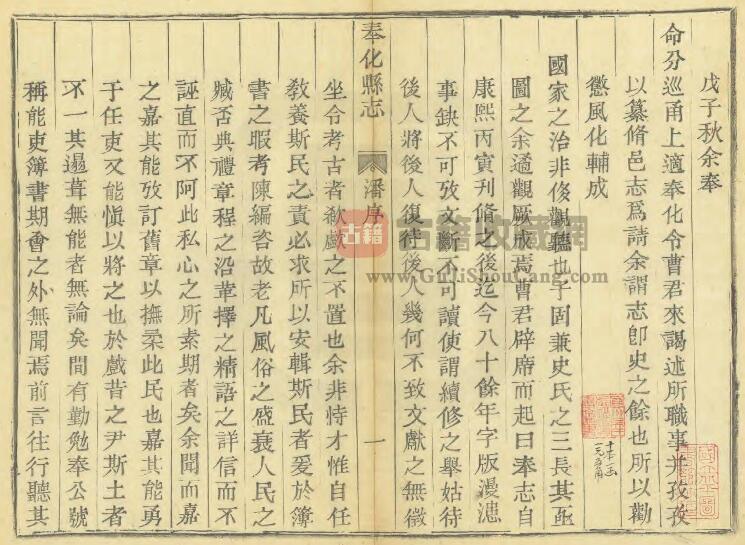 戊子秋余奉
命分巡甬上適奉化令曹君來謁述所職事并孜孜
以纂脩邑志爲請余謂志卽史之餘也所以勸
懲風化輔成
國家之治非侈觀聽也子固兼史氏之三長其亟
圖之余過觀厥成焉曹君辟席而起曰奉志自
康熙丙寅刋脩之後迄今八十餘年字版漫漶
事缺不可攷文斷不可讀使謂續修之舉姑待
後人將後人復待後人幾何不致文獻之無徵
奉化縣志
潘序
一
坐令考古者欷歔之不置也余非恃才惟自任
敎養斯民之責必求所以安輯斯民者爰於簿
書之暇考陳編咨故老凡風俗之盛衰人民之
臧否典禮章程之沿革擇之精語之詳信而不
誣直而不阿此私心之所素期者矣余聞而嘉
之嘉其能攷訂舊章以撫柔此民也嘉其能勇
于任吏又能愼以將之也於戲昔之尹斯土者
不一其遢葺無能者無論矣間有勤勉奉公號
稱能吏簿書期會之外無聞焉前言往行聽其
古籍
古籍收藏網
www.GuJiShouCang.com